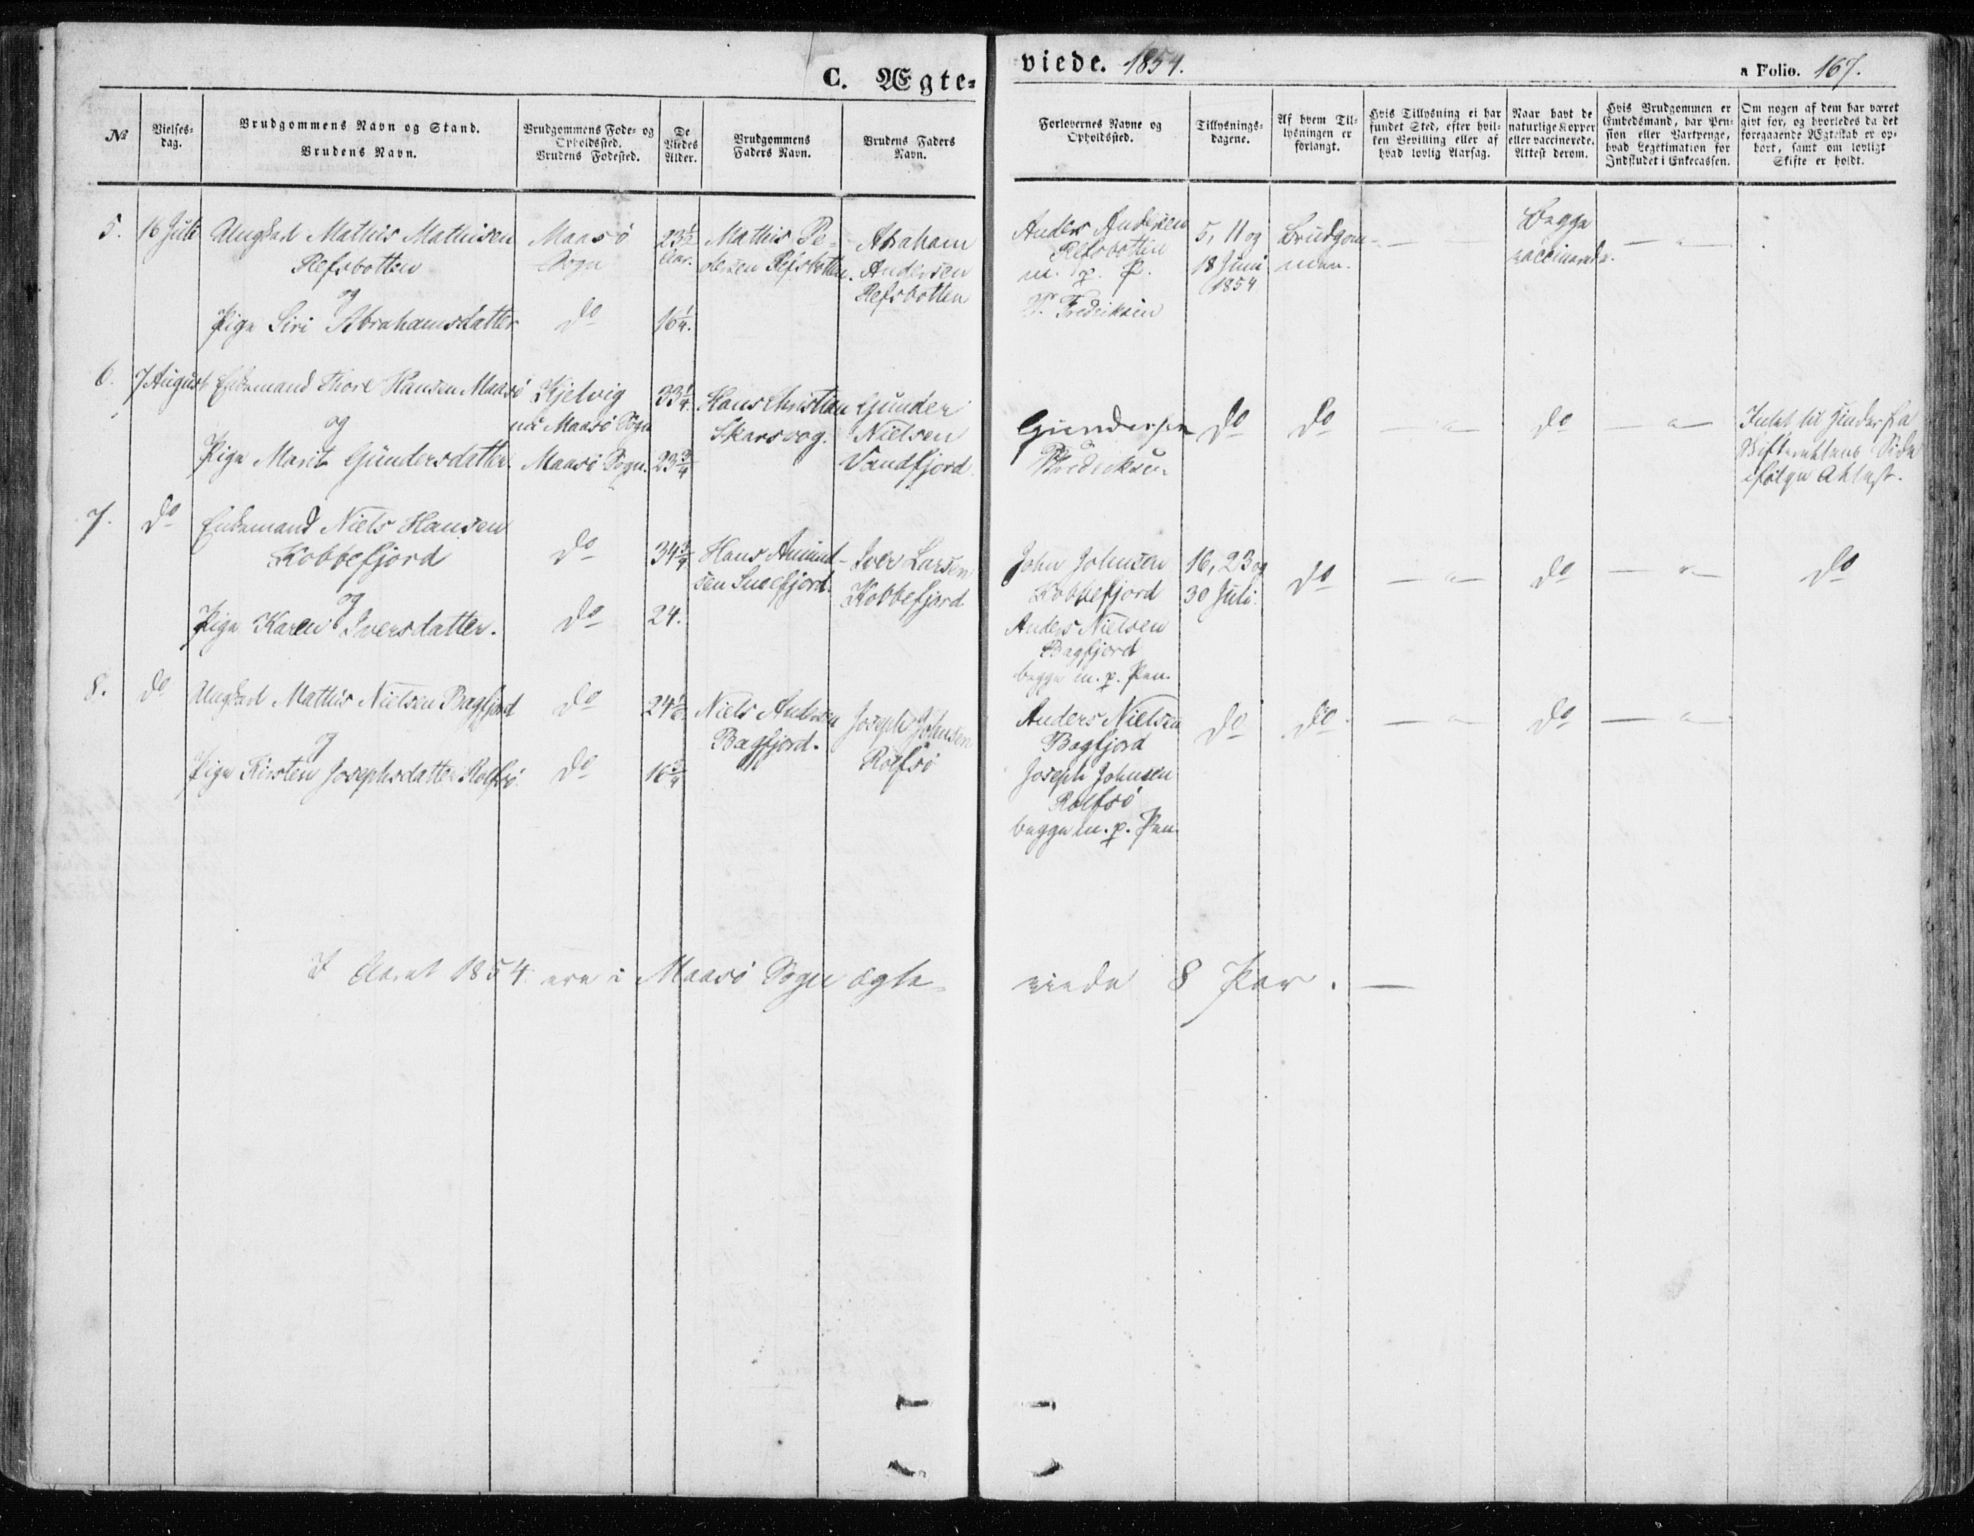 C. Ægte-
viede. 1854.
a Folio. 167.
№
Vielses-
dag.
Brudgommens Navn og Stand.
Brudens Navn.
Brudgommens Føde- og
Opholdssted.
Brudens Fødested.
De
Viedes
Alder.
Brudgommens
Faders Navn.
Brudens Faders
Navn.
Forlovernes Navne og
Opholdssted.
Tillysnings-
dagene.
Af hvem Til-
lysningen er
forlangt.
Hvis Tillysning ei har
fundet Sted, efter hvil-
ken Bevilling eller af
hvad lovlig Aarsag.
Naar havt de
naturlige Kopper
eller vaccinerede.
Attest derom.
Hvis Brudgommen er
Embedsmand, har Pen-
sion eller Vartpenge,
hvad Legitimation for
Indskudet i Enkecassen.
Om nogen af dem har været
givt før, og hvorledes da det
foregaaende Ægteskab er op-
hørt, samt om lovligt
Skifte er holdt.
5.
16 Juli
Ungkarl Mathis Mathisen
Refsbotten
og
Pige Siri Abrahamsdatter
Maasö
Sogn
do
23½
Aar.
16¼.
Mathis Pe-
dersen Refsbotten.
Abraham
Andersen
Refsbotten
Anders Andersen
Refsbotten
m. p. P.
Fredriksen
5, 11 og
18 Juni
1854
Brudgom-
men.
— " —
Begge
vaccinerede.
— " —
6.
7 August
Enkemand Thore Hansen Maasö
og
Pige Marit Gundersdatter.
Kjelvig
nu Maasö Sogn
Maasö Sogn.
33¼
23¾
Hans Christian
Skarsvog.
Gunder
Nielsen
Vandfjord.
Gundersen
Fredriksen.
do
do
— " —
do
— " —
Intet til Hinder fra
Skifterettens Side
ifølge Attest.
7.
do
Enkemand Niels Hansen
Kobbefjord
og
Pige Karen Iversdatter.
do
do
34¾
24.
Hans Amund-
sen Sneefjord.
Iver Larsen
Kobbefjord
John Johnsen
Kobbefjord
Anders Nielsen
Bagfjord
begge m. p. Pen.
16, 23 og
30 Juli.
do
— " —
do
— " —
do
8.
do
Ungkarl Mathis Nielsen Bagfjord
og
Pige Kirsten Josephsdatter Rolfsö.
do
do
24½
16¾
Niels Andersen
Bagfjord.
Joseph Johnsen
Rolfsö
Anders Nielsen
Bagfjord
Joseph Johnsen
Rolfsö
begge m. p. Pen.
do
do.
— " —
do
— " —
I Aaret 1854 ere i Maasö Sogn ægte-
viede 8 Par. —